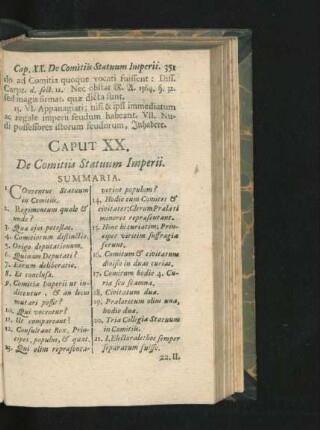 Cap. XX. De Comitiis Statuum Imperii. 351
do ad Comitia quoque vocati fuissent: Diss.
Carpz. d. sect. 12. Nec obstat R. A. 1564. §. 32.
sed magis firmat quæ dicta sunt.
15. VI. Appanagiati; nisi & ipsi immediatum
ac regale imperii feudum habeant. VII. Nu-
di possessores istorum feudorum, Inhabere.
CAPUT XX.
De Comitiis Statuum Imperii.
SUMMARIA.
1. Conventus Statuum
in Comitiis.
2. Regimentum quale &
unde?
3. Qua ejus potestas.
4. Comitiorum distinctio.
5. Origo deputationum.
6. Quinam Deputati?
7. Eorum deliberatio.
8. Et conclusa.
9. Comitia Imperii ut in-
dicentur, & an locus
mutari possit?
10. Qui vocentur?
11. Ut compareant?
12. Consultant Rex, Prin-
cipes, populus, & quat.
13. Qui olim repræsenta-
verint populum?
14. Hodie eum Comites &
civitates: Clerum Prælati
minores repræsentant.
15. Hinc bicuriatim; Prin-
cipes viritim suffragia
ferunt.
16. Comitum & civitatum
divisio in duas curias.
17. Comitum hodie 4. Cu-
ria seu scamna.
18. Civitatum duæ.
19. Prælatorum olim una,
hodie duæ.
20. Tria Collegia Statuum
in Comitiis.
21. I. Electorale hoc semper
separatum fuisse.
22. II.